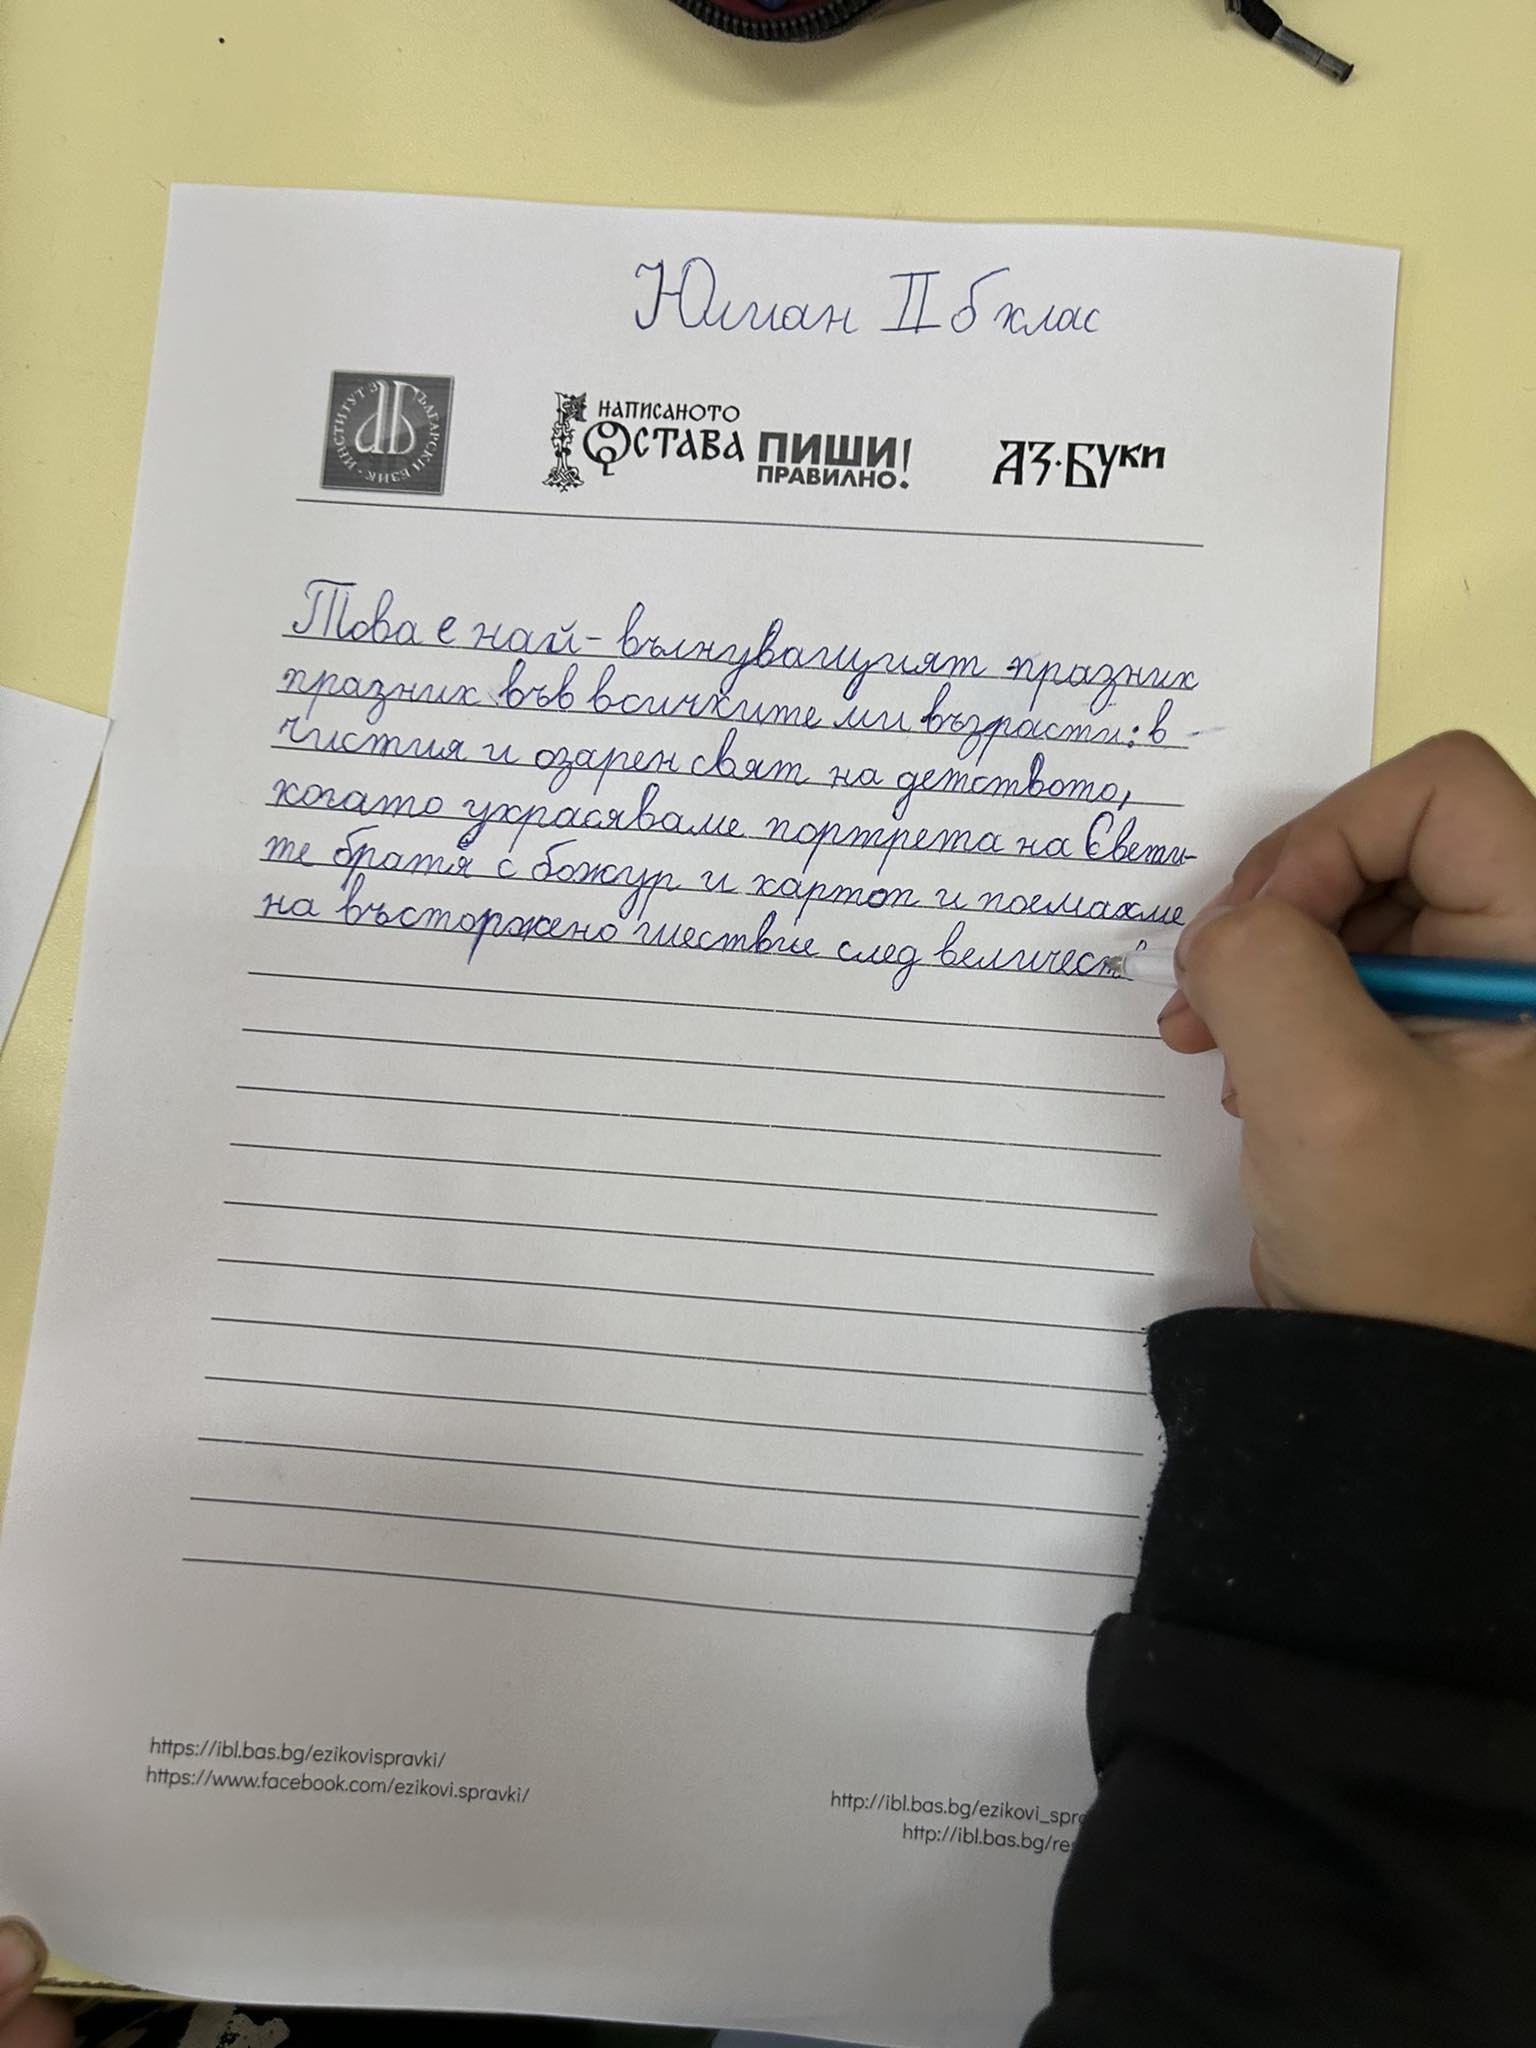 Юлиан II б клас
ИНСТИТУТ ЗА БЪЛГАРСКИ ЕЗИК
НАПИСАНОТО
ОСТАВА ПИШИ
ПРАВИЛНО!
АЗ·БУКИ
Това е най-вълнуващият празник
празник във всичките ми възрасти: в
чистия и озарен свят на детството,
когато украсяваме портрета на Свети-
те братя с божур и картоп и поемахме
на въсторжено шествие след величест
https://ibl.bas.bg/ezikovispravki/
https://www.facebook.com/ezikovi.spravki/
http://ibl.bas.bg/ezikovi_spra
http://ibl.bas.bg/re